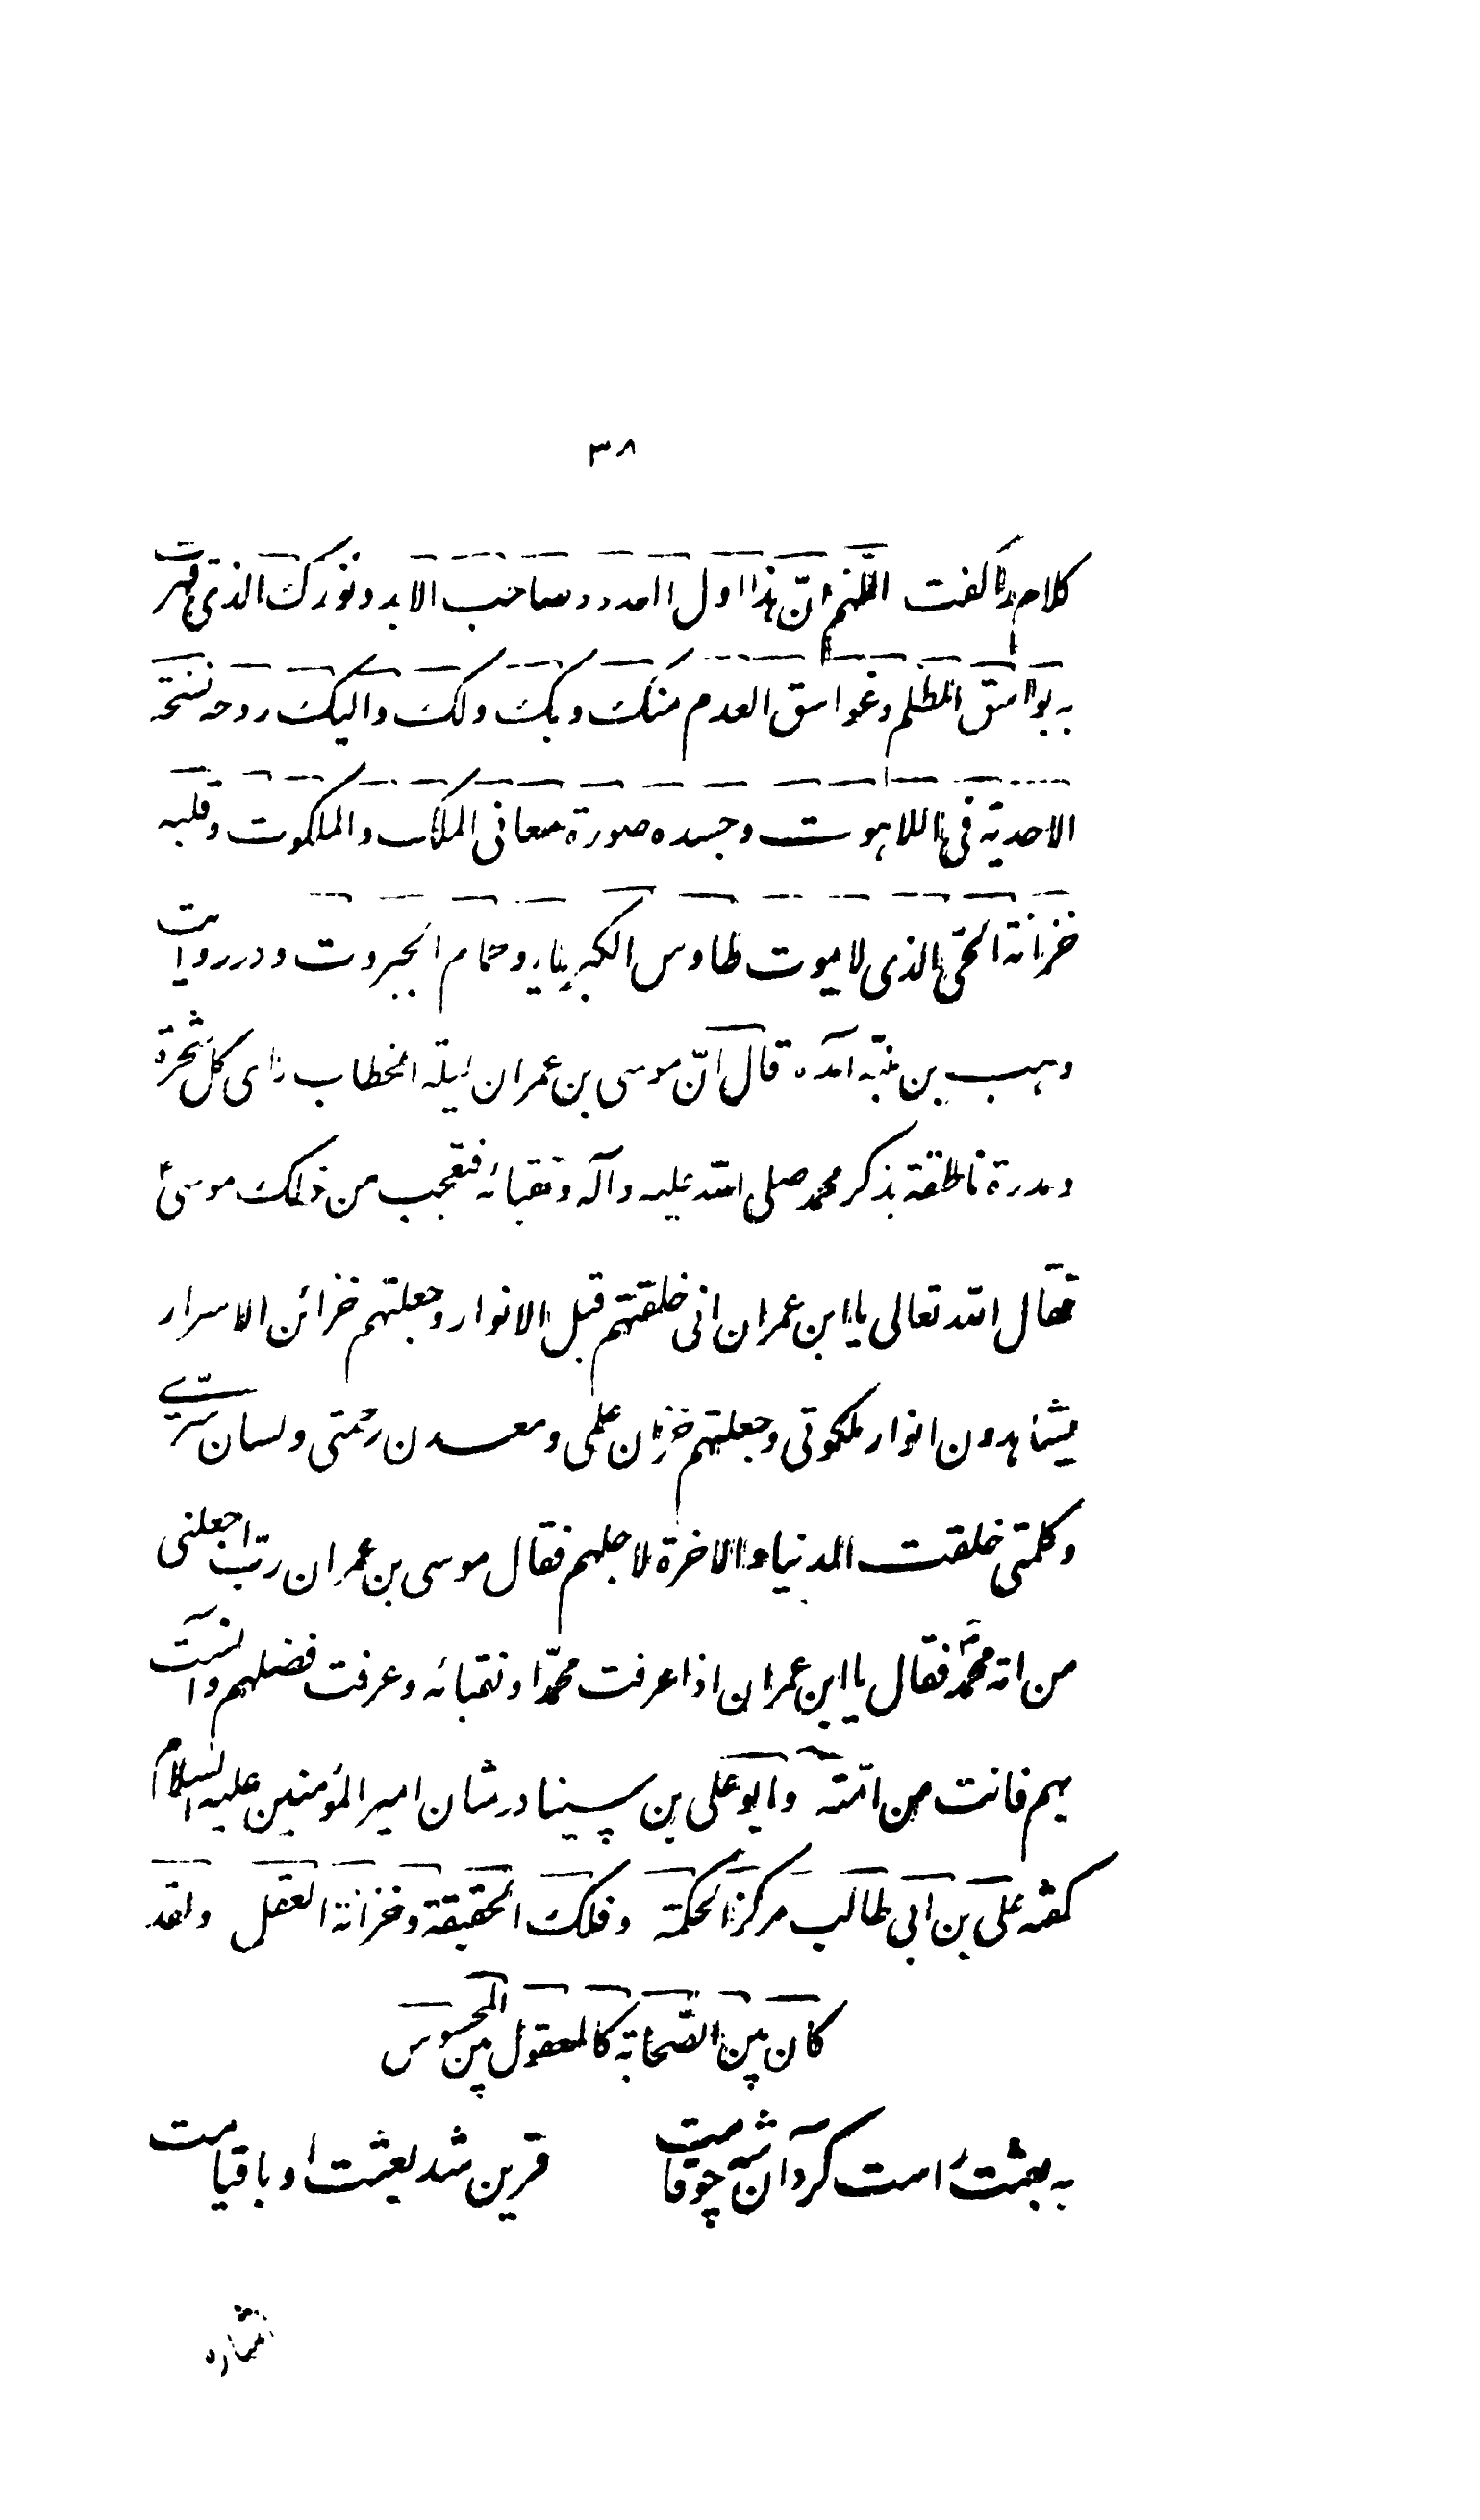 ۳۸
کلام را گفت اللهم انّ هذا اول العدد و صاحب الابد و نورک الذی قهرت
به بواسق الظلم و غواسق العدم منک و بک و لک و الیک روحه نسخة
الاحدیة فی اللاهوت و جسده صورة معانی الملک و الملکوت و قلبه
خزانة الحی الذی لا یموت طاوس الکبریاء و حمام الجبروت و در روایت
وهب بن منبّه آمده قال انّ موسی بن عمران لیلة الخطاب رای کل شجرة
و مدرة ناطقة بذکر محمد صلی الله علیه و آله و نقبائه فتعجب من ذلک موسیٰ
فقال الله تعالی یا ابن عمران انی خلقتهم قبل الانوار و جعلتهم خزائن الاسرار
یشاهدون انوار ملکوتی و جعلتهم خزان علمی و معدن رحمتی و لسان سرّی
و کلمتی خلقت الدنیا و الاخرة لاجلهم فقال موسی بن عمران رب اجعلنی
من امة محمّد فقال یا ابن عمران اذا عرفت محمّدا و نقبائه و عرفت فضلهم و آمنت
بهم فانت من امّته و ابو علی بن سینا در شان امیر المؤمنین علیه السلام
گفته علی بن ابی طالب مرکز الحکمة و فلک الحقیقة و خزانة العقل ولقد
کان بین الصّحابة کالمعقول بین المحسوس
به بعثت راست کرد آن شه چو قامت قرین شد بعثت او با قیامت